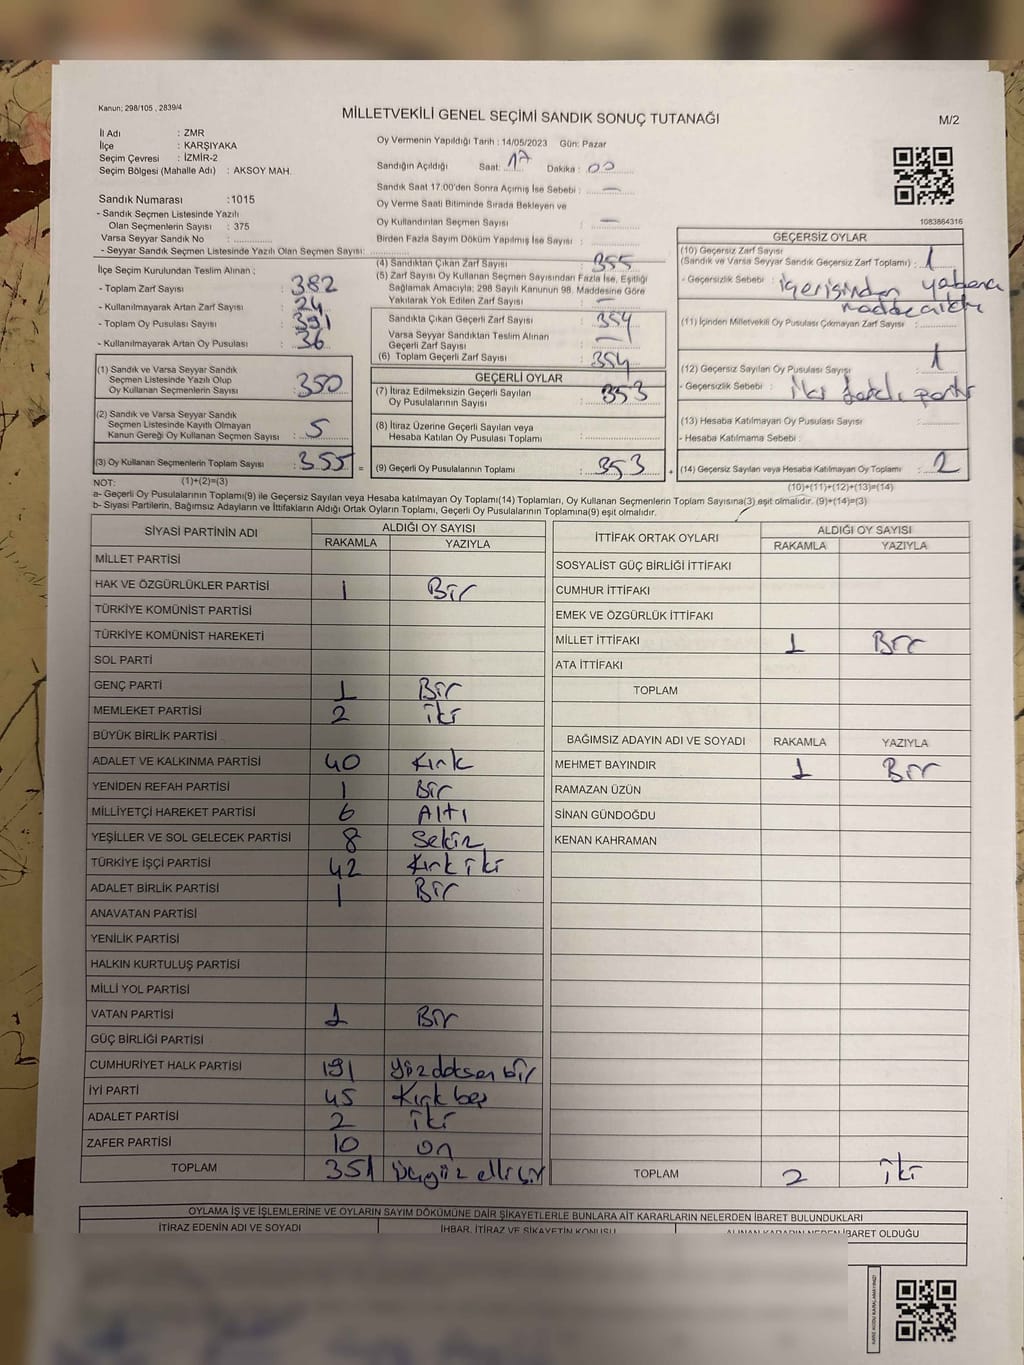 Kanun; 298/105 , 2839/4
MİLLETVEKİLİ GENEL SEÇİMİ SANDIK SONUÇ TUTANAĞI
M/2
İl Adı : ZMR
İlçe : KARŞIYAKA
Seçim Çevresi : İZMİR-2
Seçim Bölgesi (Mahalle Adı) : AKSOY MAH.
Sandık Numarası :1015
- Sandık Seçmen Listesinde Yazılı
Olan Seçmenlerin Sayısı : 375
Varsa Seyyar Sandık No :
- Seyyar Sandık Seçmen Listesinde Yazılı Olan Seçmen Sayısı:
Oy Vermenin Yapıldığı Tarih : 14/05/2023 Gün: Pazar
Sandığın Açıldığı Saat: 17 Dakika : 00
Sandık Saat 17.00'den Sonra Açılmış İse Sebebi : —
Oy Verme Saati Bitiminde Sırada Bekleyen ve
Oy Kullandırılan Seçmen Sayısı : —
Birden Fazla Sayım Döküm Yapılmış İse Sayısı :
1083864316
İlçe Seçim Kurulundan Teslim Alınan ;
- Toplam Zarf Sayısı : 382
- Kullanılmayarak Artan Zarf Sayısı : 24
- Toplam Oy Pusulası Sayısı : 391
- Kullanılmayarak Artan Oy Pusulası : 36
(1) Sandık ve Varsa Seyyar Sandık
Seçmen Listesinde Yazılı Olup
Oy Kullanan Seçmenlerin Sayısı : 350
(2) Sandık ve Varsa Seyyar Sandık
Seçmen Listesinde Kayıtlı Olmayan
Kanun Gereği Oy Kullanan Seçmen Sayısı : 5
(3) Oy Kullanan Seçmenlerin Toplam Sayısı : 355 =
(4) Sandıktan Çıkan Zarf Sayısı : 355
(5) Zarf Sayısı Oy Kullanan Seçmen Sayısından Fazla İse, Eşitliği
Sağlamak Amacıyla; 298 Sayılı Kanunun 98. Maddesine Göre
Yakılarak Yok Edilen Zarf Sayısı : —
Sandıkta Çıkan Geçerli Zarf Sayısı : 354
Varsa Seyyar Sandıktan Teslim Alınan
Geçerli Zarf Sayısı : —
(6) Toplam Geçerli Zarf Sayısı : 354
GEÇERLİ OYLAR
(7) İtiraz Edilmeksizin Geçerli Sayılan
Oy Pusulalarının Sayısı : 353
(8) İtiraz Üzerine Geçerli Sayılan veya
Hesaba Katılan Oy Pusulası Toplamı :
(9) Geçerli Oy Pusulalarının Toplamı : 353 +
GEÇERSİZ OYLAR
(10) Geçersiz Zarf Sayısı
(Sandık ve Varsa Seyyar Sandık Geçersiz Zarf Toplamı) : 1
- Geçersizlik Sebebi : içerisinden yabancı
madde çıktı
(11) İçinden Milletvekili Oy Pusulası Çıkmayan Zarf Sayısı :
(12) Geçersiz Sayılan Oy Pusulası Sayısı : 1
- Geçersizlik Sebebi : iki farklı parti
(13) Hesaba Katılmayan Oy Pusulası Sayısı :
- Hesaba Katılmama Sebebi :
(14) Geçersiz Sayılan veya Hesaba Katılmayan Oy Toplamı : 2
NOT: (1)+(2)=(3)
(10)+(11)+(12)+(13)=(14)
a- Geçerli Oy Pusulalarının Toplamı(9) ile Geçersiz Sayılan veya Hesaba katılmayan Oy Toplamı(14) Toplamları, Oy Kullanan Seçmenlerin Toplam Sayısına(3) eşit olmalıdır. (9)+(14)=(3)
b- Siyasi Partilerin, Bağımsız Adayların ve İttifakların Aldığı Ortak Oyların Toplamı, Geçerli Oy Pusulalarının Toplamına(9) eşit olmalıdır.
SİYASİ PARTİNİN ADI ALDIĞI OY SAYISI
RAKAMLA YAZIYLA
MİLLET PARTİSİ
HAK VE ÖZGÜRLÜKLER PARTİSİ 1 Bir
TÜRKİYE KOMÜNİST PARTİSİ
TÜRKİYE KOMÜNİST HAREKETİ
SOL PARTİ
GENÇ PARTİ 1 Bir
MEMLEKET PARTİSİ 2 iki
BÜYÜK BİRLİK PARTİSİ
ADALET VE KALKINMA PARTİSİ 40 Kırk
YENİDEN REFAH PARTİSİ 1 Bir
MİLLİYETÇİ HAREKET PARTİSİ 6 Altı
YEŞİLLER VE SOL GELECEK PARTİSİ 8 Sekiz
TÜRKİYE İŞÇİ PARTİSİ 42 Kırk iki
ADALET BİRLİK PARTİSİ 1 Bir
ANAVATAN PARTİSİ
YENİLİK PARTİSİ
HALKIN KURTULUŞ PARTİSİ
MİLLİ YOL PARTİSİ
VATAN PARTİSİ 1 Bir
GÜÇ BİRLİĞİ PARTİSİ
CUMHURİYET HALK PARTİSİ 191 Yüz doksan bir
İYİ PARTİ 45 Kırk beş
ADALET PARTİSİ 2 iki
ZAFER PARTİSİ 10 on
TOPLAM 351 Üçyüz elli bir
İTTİFAK ORTAK OYLARI ALDIĞI OY SAYISI
RAKAMLA YAZIYLA
SOSYALİST GÜÇ BİRLİĞİ İTTİFAKI
CUMHUR İTTİFAKI
EMEK VE ÖZGÜRLÜK İTTİFAKI
MİLLET İTTİFAKI 1 Bir
ATA İTTİFAKI
TOPLAM
BAĞIMSIZ ADAYIN ADI VE SOYADI RAKAMLA YAZIYLA
MEHMET BAYINDIR 1 Bir
RAMAZAN ÜZÜN
SİNAN GÜNDOĞDU
KENAN KAHRAMAN
TOPLAM 2 iki
OYLAMA İŞ VE İŞLEMLERİNE VE OYLARIN SAYIM DÖKÜMÜNE DAİR ŞİKAYETLERLE BUNLARA AİT KARARLARIN NELERDEN İBARET BULUNDUKLARI
İTİRAZ EDENİN ADI VE SOYADI İHBAR, İTİRAZ VE ŞİKAYETİN KONUSU ALINAN KARARIN NEDEN İBARET OLDUĞU